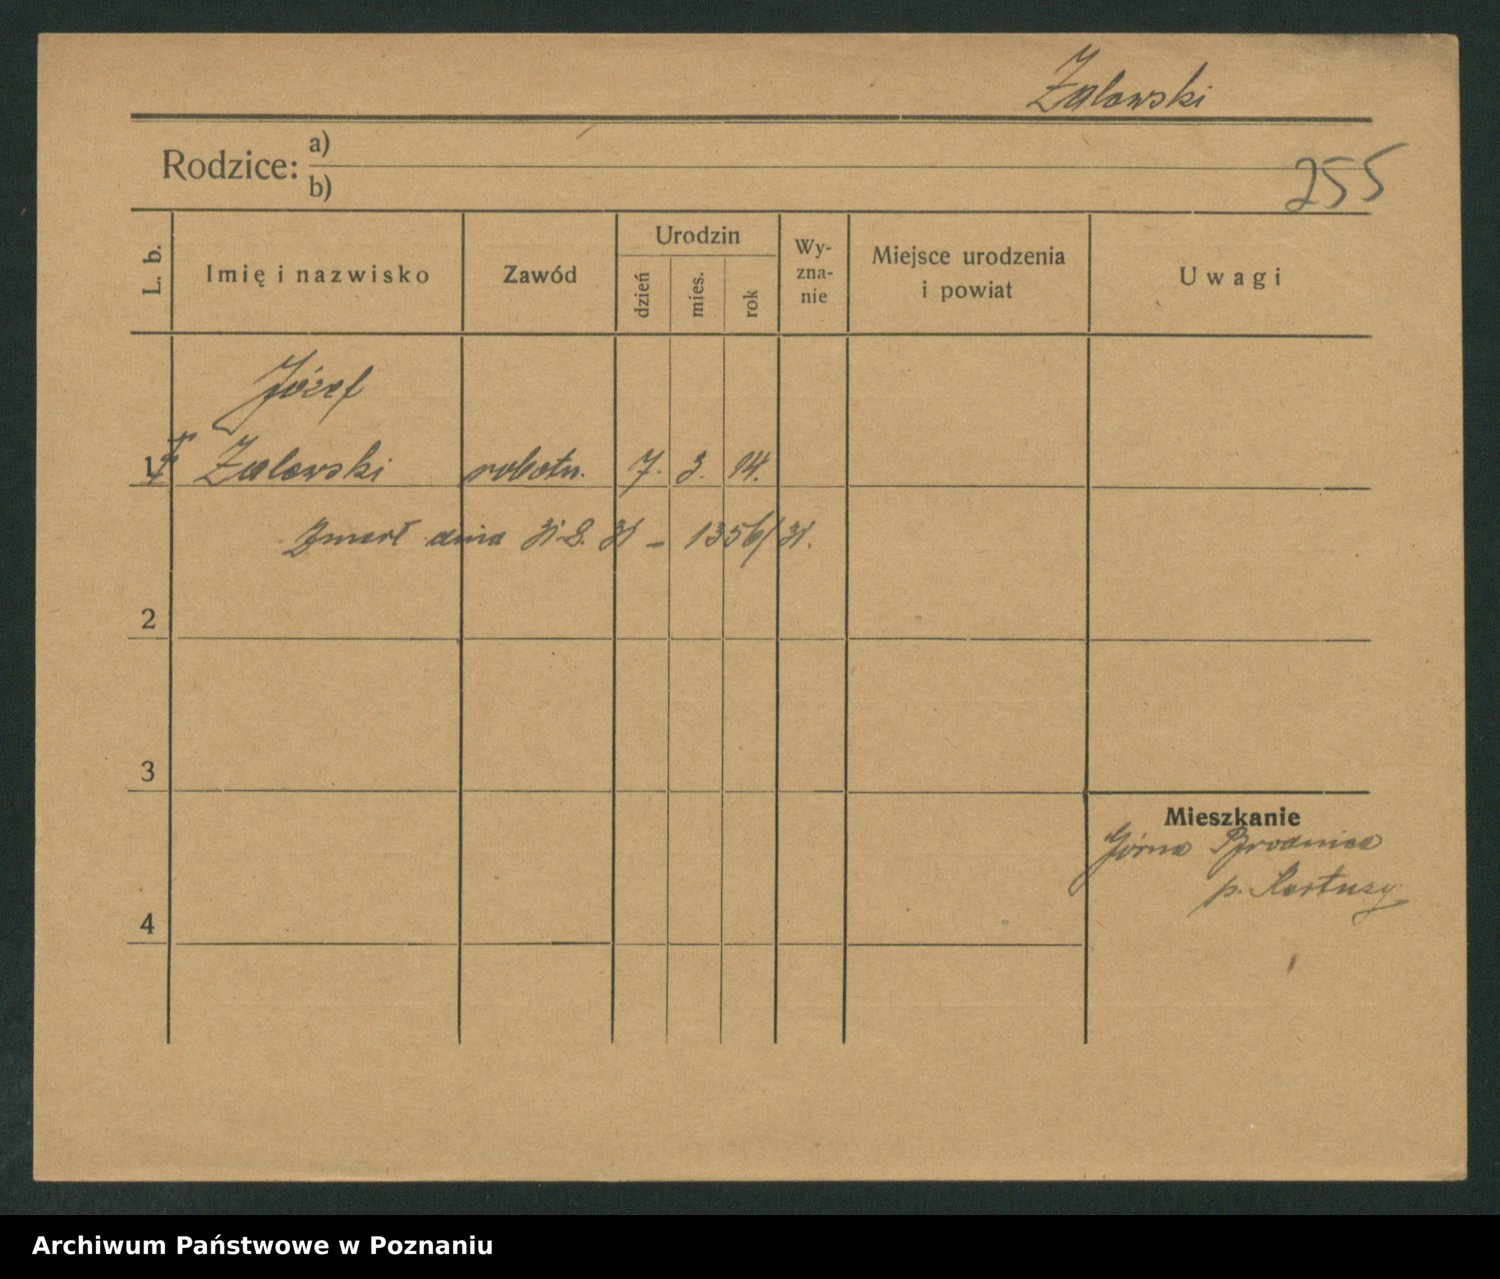 Zalewski
255
Rodzice: a)
b)
L. b.
Imię i nazwisko
Zawód
Urodzin
dzień
mies.
rok
Wy-
zna-
nie
Miejsce urodzenia
i powiat
Uwagi
Józef
1 Zalewski robotn. 7. 3. 14.
Zmarł dnia 31. 8. 31 - 1356/31.
2
3
Mieszkanie
Górna Brodnica
p. Kartuzy
4
Archiwum Państwowe w Poznaniu